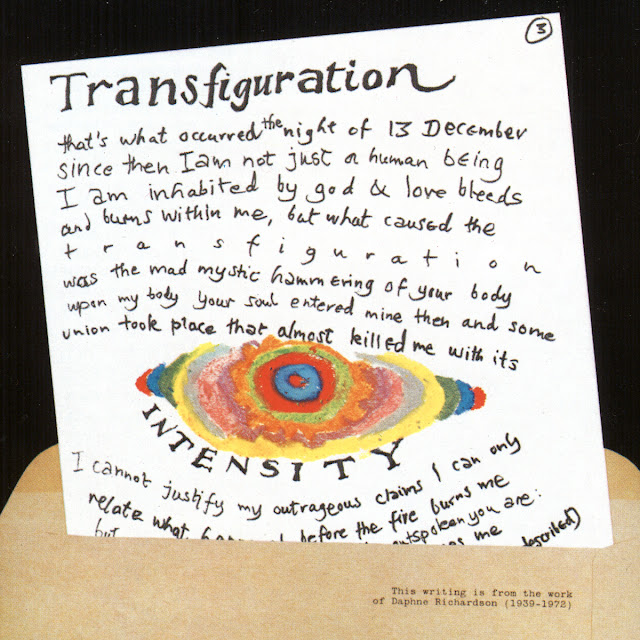 3
Transfiguration
that's what occurred the night of 13 December
since then I am not just a human being
I am inhabited by god & love bleeds
and burns within me, but what caused the
transfiguration
was the mad mystic hammering of your body
upon my body your soul entered mine then and some
union took place that almost killed me with its
INTENSITY
I cannot justify my outrageous claims I can only
relate what before the fire burns me
but outspoken you are:
me described)
This writing is from the work
of Daphne Richardson (1939-1972)